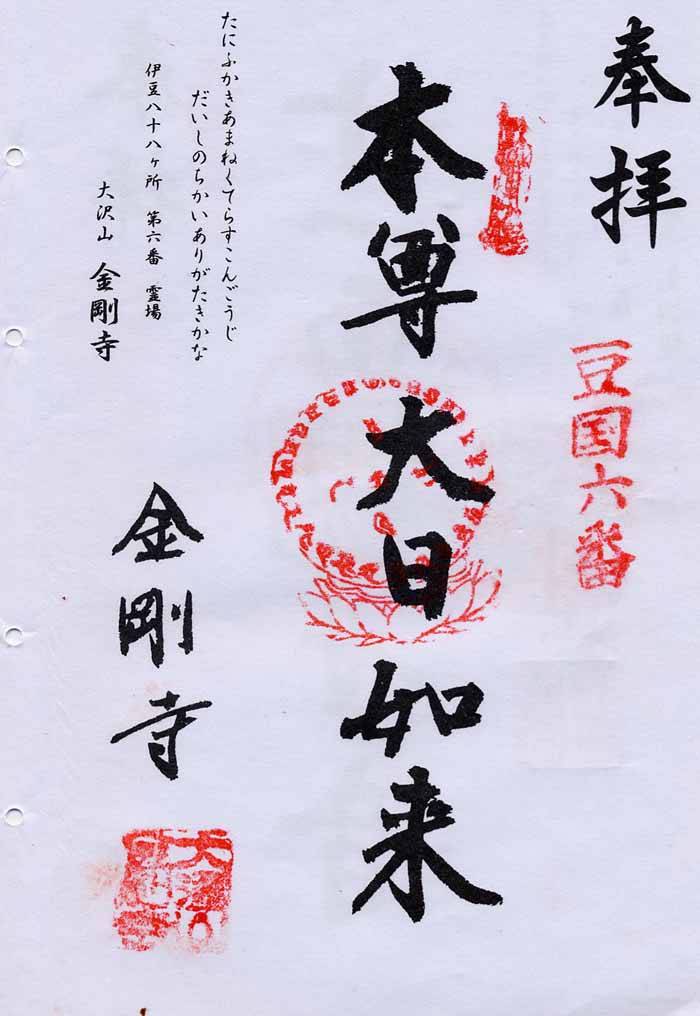 奉拝
豆国六番
本尊大日如来
たにふかきあまねくてらすこんごうじ
だいしのちかいありがたきかな
伊豆八十八ヶ所 第六番 霊場
大沢山 金剛寺
金剛寺